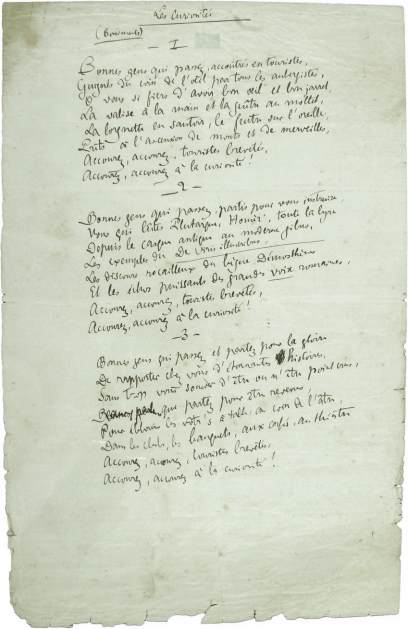 Les Curiosités
(Boniments)
— I —
Bonnes gens qui passez, accoutrés en touristes,
Guignés du coin de l'œil par tous les aubergistes,
O vous si fiers d'avoir bon œil et bon jarret,
La valise à la main et la guêtre au mollet,
La lorgnette en sautoir, le feutre sur l'oreille,
Prêts à l'ascension de monts et de merveilles,
Accourez, accourez, touristes brevetés,
Accourez, accourez à la curiosité !
— 2 —
Bonnes gens qui passez, partis pour vous instruire,
Vous qui lûtes Plutarque, Homère, toute la lyre
Depuis le casque antique au moderne gibus,
Les exemples du De viris illustribus,
Les discours rocailleux du bègue Démosthène
Et les échos puissants des grandes voix romaines,
Accourez, accourez, touristes brevetés,
Accourez, accourez à la curiosité !
— 3 —
Bonnes gens qui passez et partez pour la gloire
De rapporter chez vous d'étonnantes histoires,
Sans trop vous soucier d'être ou n'être point crus,
que partez pour être revenus,
Pour éblouir les vôtres à table, au coin de l'âtre,
Dans les clubs, les banquets, aux cafés, au théâtre
Accourez, accourez, touristes brevetés,
Accourez, accourez à la curiosité !